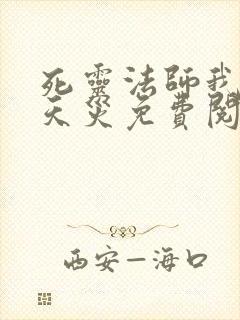 死靈法師我
天災免費閱
西安—海口